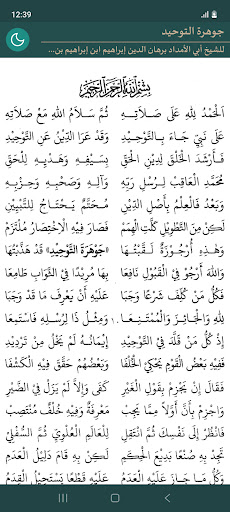 12:39
جوهرة التوحيد
للشيخ أبي الأمداد برهان الدين إبراهيم ابن إبراهيم بن...
بِسْمِ اللَّهِ الرَّحْمَنِ الرَّحِيمِ
الْحَمْدُ لِلَّهِ عَلَى صِلَاتِهِ ثُمَّ سَلَامُ اللَّهِ مَعْ صَلَاتِهِ
عَلَى نَبِيٍّ جَاءَ بِالتَّوْحِيدِ وَقَدْ عَرَا الدِّينُ عَنِ التَّوْحِيدِ
فَأَرْشَدَ الْخَلْقَ لِدِينِ الْحَقِّ بِسَيْفِهِ وَهَدْيِهِ لِلْحَقِّ
مُحَمَّدِ الْعَاقِبْ لِرُسْلِ رَبِّهِ وَآلِهِ وَصَحْبِهِ وَحِزْبِهِ
وَبَعْدُ فَالْعِلْمُ بِأَصْلِ الدِّينِ مُحَتَّمٌ يَحْتَاجُ لِلتَّبْيِينِ
لَكِنْ مِنَ التَّطْوِيلِ كَلَّتِ الْهِمَمْ فَصَارَ فِيهِ الِاخْتِصَارُ مُلْتَزَمْ
وَهَذِهِ أُرْجُوزَةٌ لَقَّبْتُهَا «جَوْهَرَةَ التَّوْحِيدِ» قَدْ هَذَّبْتُهَا
وَاللَّهَ أَرْجُو فِي الْقَبُولِ نَافِعَا بِهَا مُرِيدًا فِي الثَّوَابِ طَامِعَا
فَكُلُّ مَنْ كُلِّفَ شَرْعًا وَجَبَا عَلَيْهِ أَنْ يَعْرِفَ مَا قَدْ وَجَبَا
لِلَّهِ وَالْجَائِزَ وَالْمُمْتَنِعَا ١٠ وَمِثْلُ ذَا لِرُسْلِهِ فَاسْتَمِعَا
إِذْ كُلُّ مَنْ قَلَّدَ فِي التَّوْحِيدِ إِيمَانُهُ لَمْ يَخْلُ مِنْ تَرْدِيدِ
فَفِيهِ بَعْضُ الْقَوْمِ يَحْكِي الْخُلْفَا وَبَعْضُهُمْ حَقَّقَ فِيهِ الْكَشْفَا
فَقَالَ إِنْ يَجْزِمْ بِقَوْلِ الْغَيْرِ كَفَى وَإِلَّا لَمْ يَزَلْ فِي الضَّيْرِ
وَاجْزِمْ بِأَنَّ أَوَّلًا مِمَّا يَجِبْ مَعْرِفَةٌ وَفِيهِ خُلْفٌ مُنْتَصِبْ
فَانْظُرْ إِلَى نَفْسِكَ ثُمَّ انْتَقِلِ لِلْعَالَمِ الْعُلْوِيِّ ثُمَّ السُّفْلِي
تَجِدْ بِهِ صُنْعًا بَدِيعَ الْحِكَمِ لَكِنْ بِهِ قَامَ دَلِيلُ الْعَدَمِ
وَكُلُّ مَا جَازَ عَلَيْهِ الْعَدَمُ عَلَيْهِ قَطْعًا يَسْتَحِيلُ الْقِدَمُ